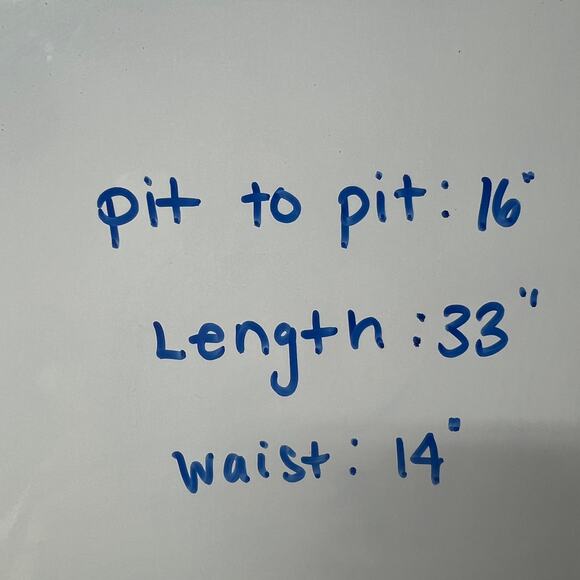 pit to pit: 16"
Length: 33"
waist: 14"